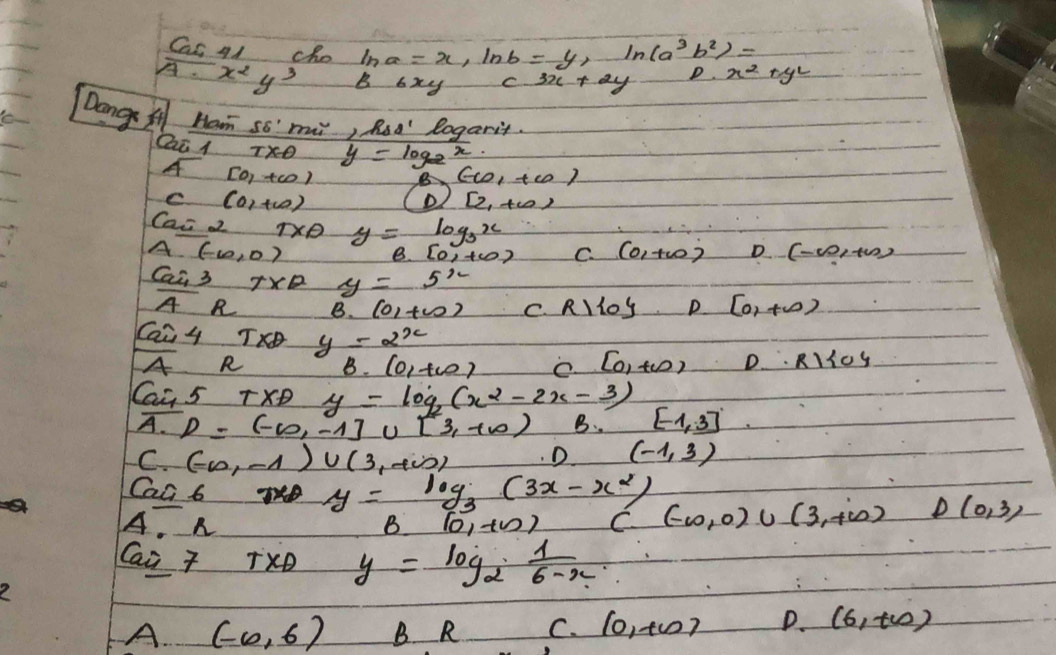 Câu 41 cho ln a = x, ln b = y, ln(a³b²) =
A. x²y³ B 6xy C 3x + 2y D. x² + y²
Dạng 4 Hàm số mũ, hsố logarit.
Câu 1 TXĐ y = log₂ x.
A [0, +∞) B (-∞, +∞)
C (0, +∞) D [2, +∞)
Câu 2 TXĐ y = log₃ x
A. (-∞, 0) B. [0, +∞) C. (0, +∞) D. (-∞, +∞)
Câu 3 TXĐ y = 5ˣ
A R B. (0, +∞) C. R\{0} D. [0, +∞)
Câu 4 TXĐ y = 2ˣ
A R B. (0, +∞) C. [0, +∞) D. R\{0}
Câu 5 TXĐ y = log₂(x² - 2x - 3)
A. D = (-∞, -1] ∪ [3, +∞) B. [-1, 3]
C. (-∞, -1) ∪ (3, +∞) D (-1, 3)
Câu 6 TXĐ y = log₃ (3x - x²)
A. R B [0, +∞) C (-∞, 0) ∪ (3, +∞) D (0, 3)
Câu 7 TXĐ y = log₂ 1/(6 - x)
A (-∞, 6) B R C. (0, +∞) D. (6, +∞)